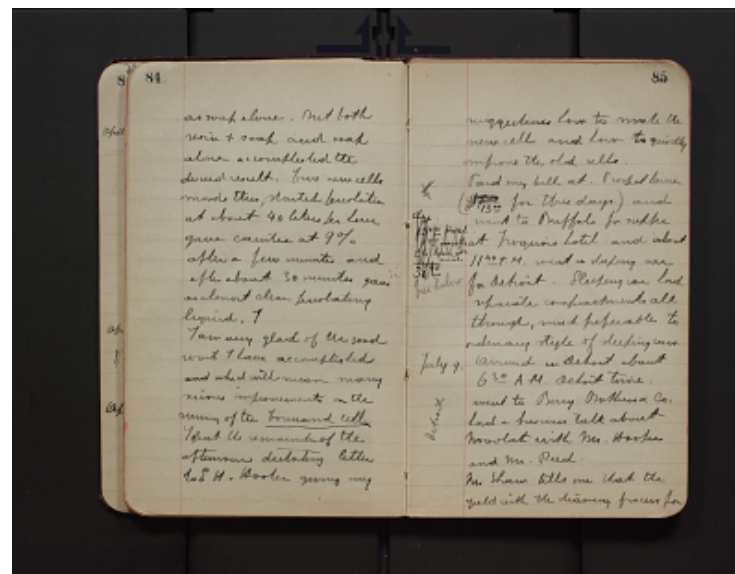 84
as soap alone. But both
rosin + soap and soap
alone accomplished the
desired result. Two new cells
made thus, started percolation
at about 40 liters per hour
gave caustic at 9%
after a few minutes and
after about 30 minutes gave
an almost clear percolating
liquid.
I am very glad of the good
work I have accomplished
and which will mean many
serious improvements in the
running of the Townsend cells
Spent the remainder of the
afternoon dictating letter
to E. H. Hooker giving my
85
suggestions how to make the
new cell and how to quickly
improve the old cells.
Paid my bill at Prospect house
( for three days) and
went to Buffalo for supper
at Iroquois hotel and about
11 30 P.M. went in sleeping car
for Detroit. Sleeping car had
separate compartments all
through, much preferable to
ordinary style of sleeping cars
July 9. Arrived in Detroit about
6 30 A.M. Detroit time.
Detroit
went to Berry Brothers & Co.
had a business talk about
Novolak with Mr. Hooker
and Mr. Reed.
Mr. Shaw tells me that the
yield with the steaming process for